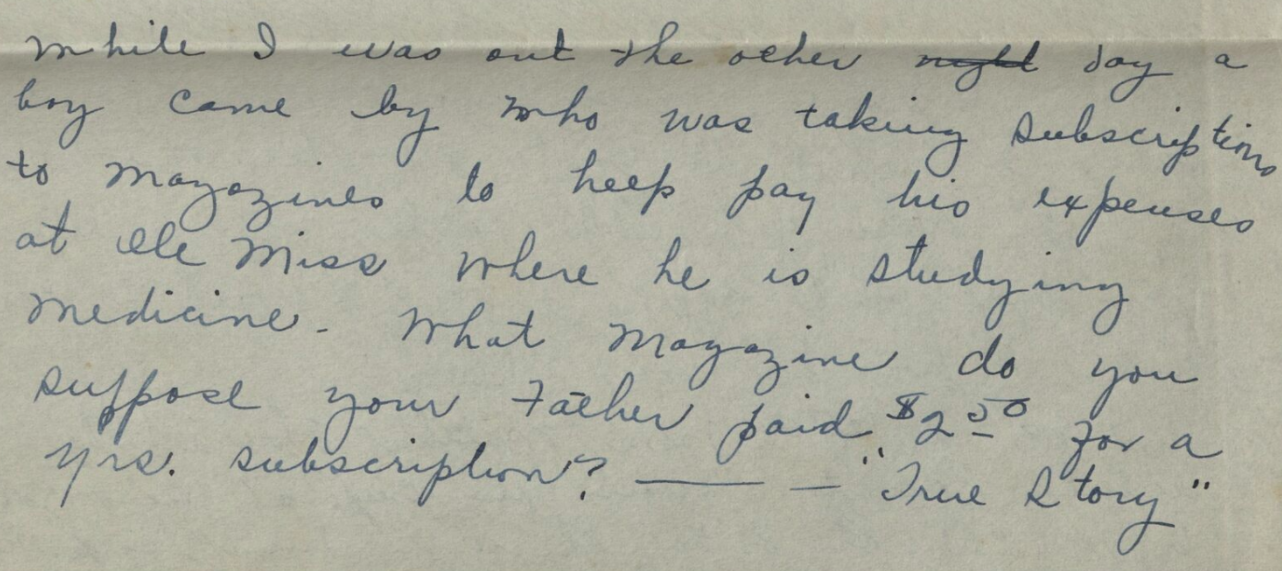 While I was out the other night day a
boy came by who was taking subscriptions
to magazines to help pay his expenses
at Ole Miss where he is studying
medicine. What magazine do you
suppose your Father paid $2.50 for a
yrs. subscription? —— — "True Story"